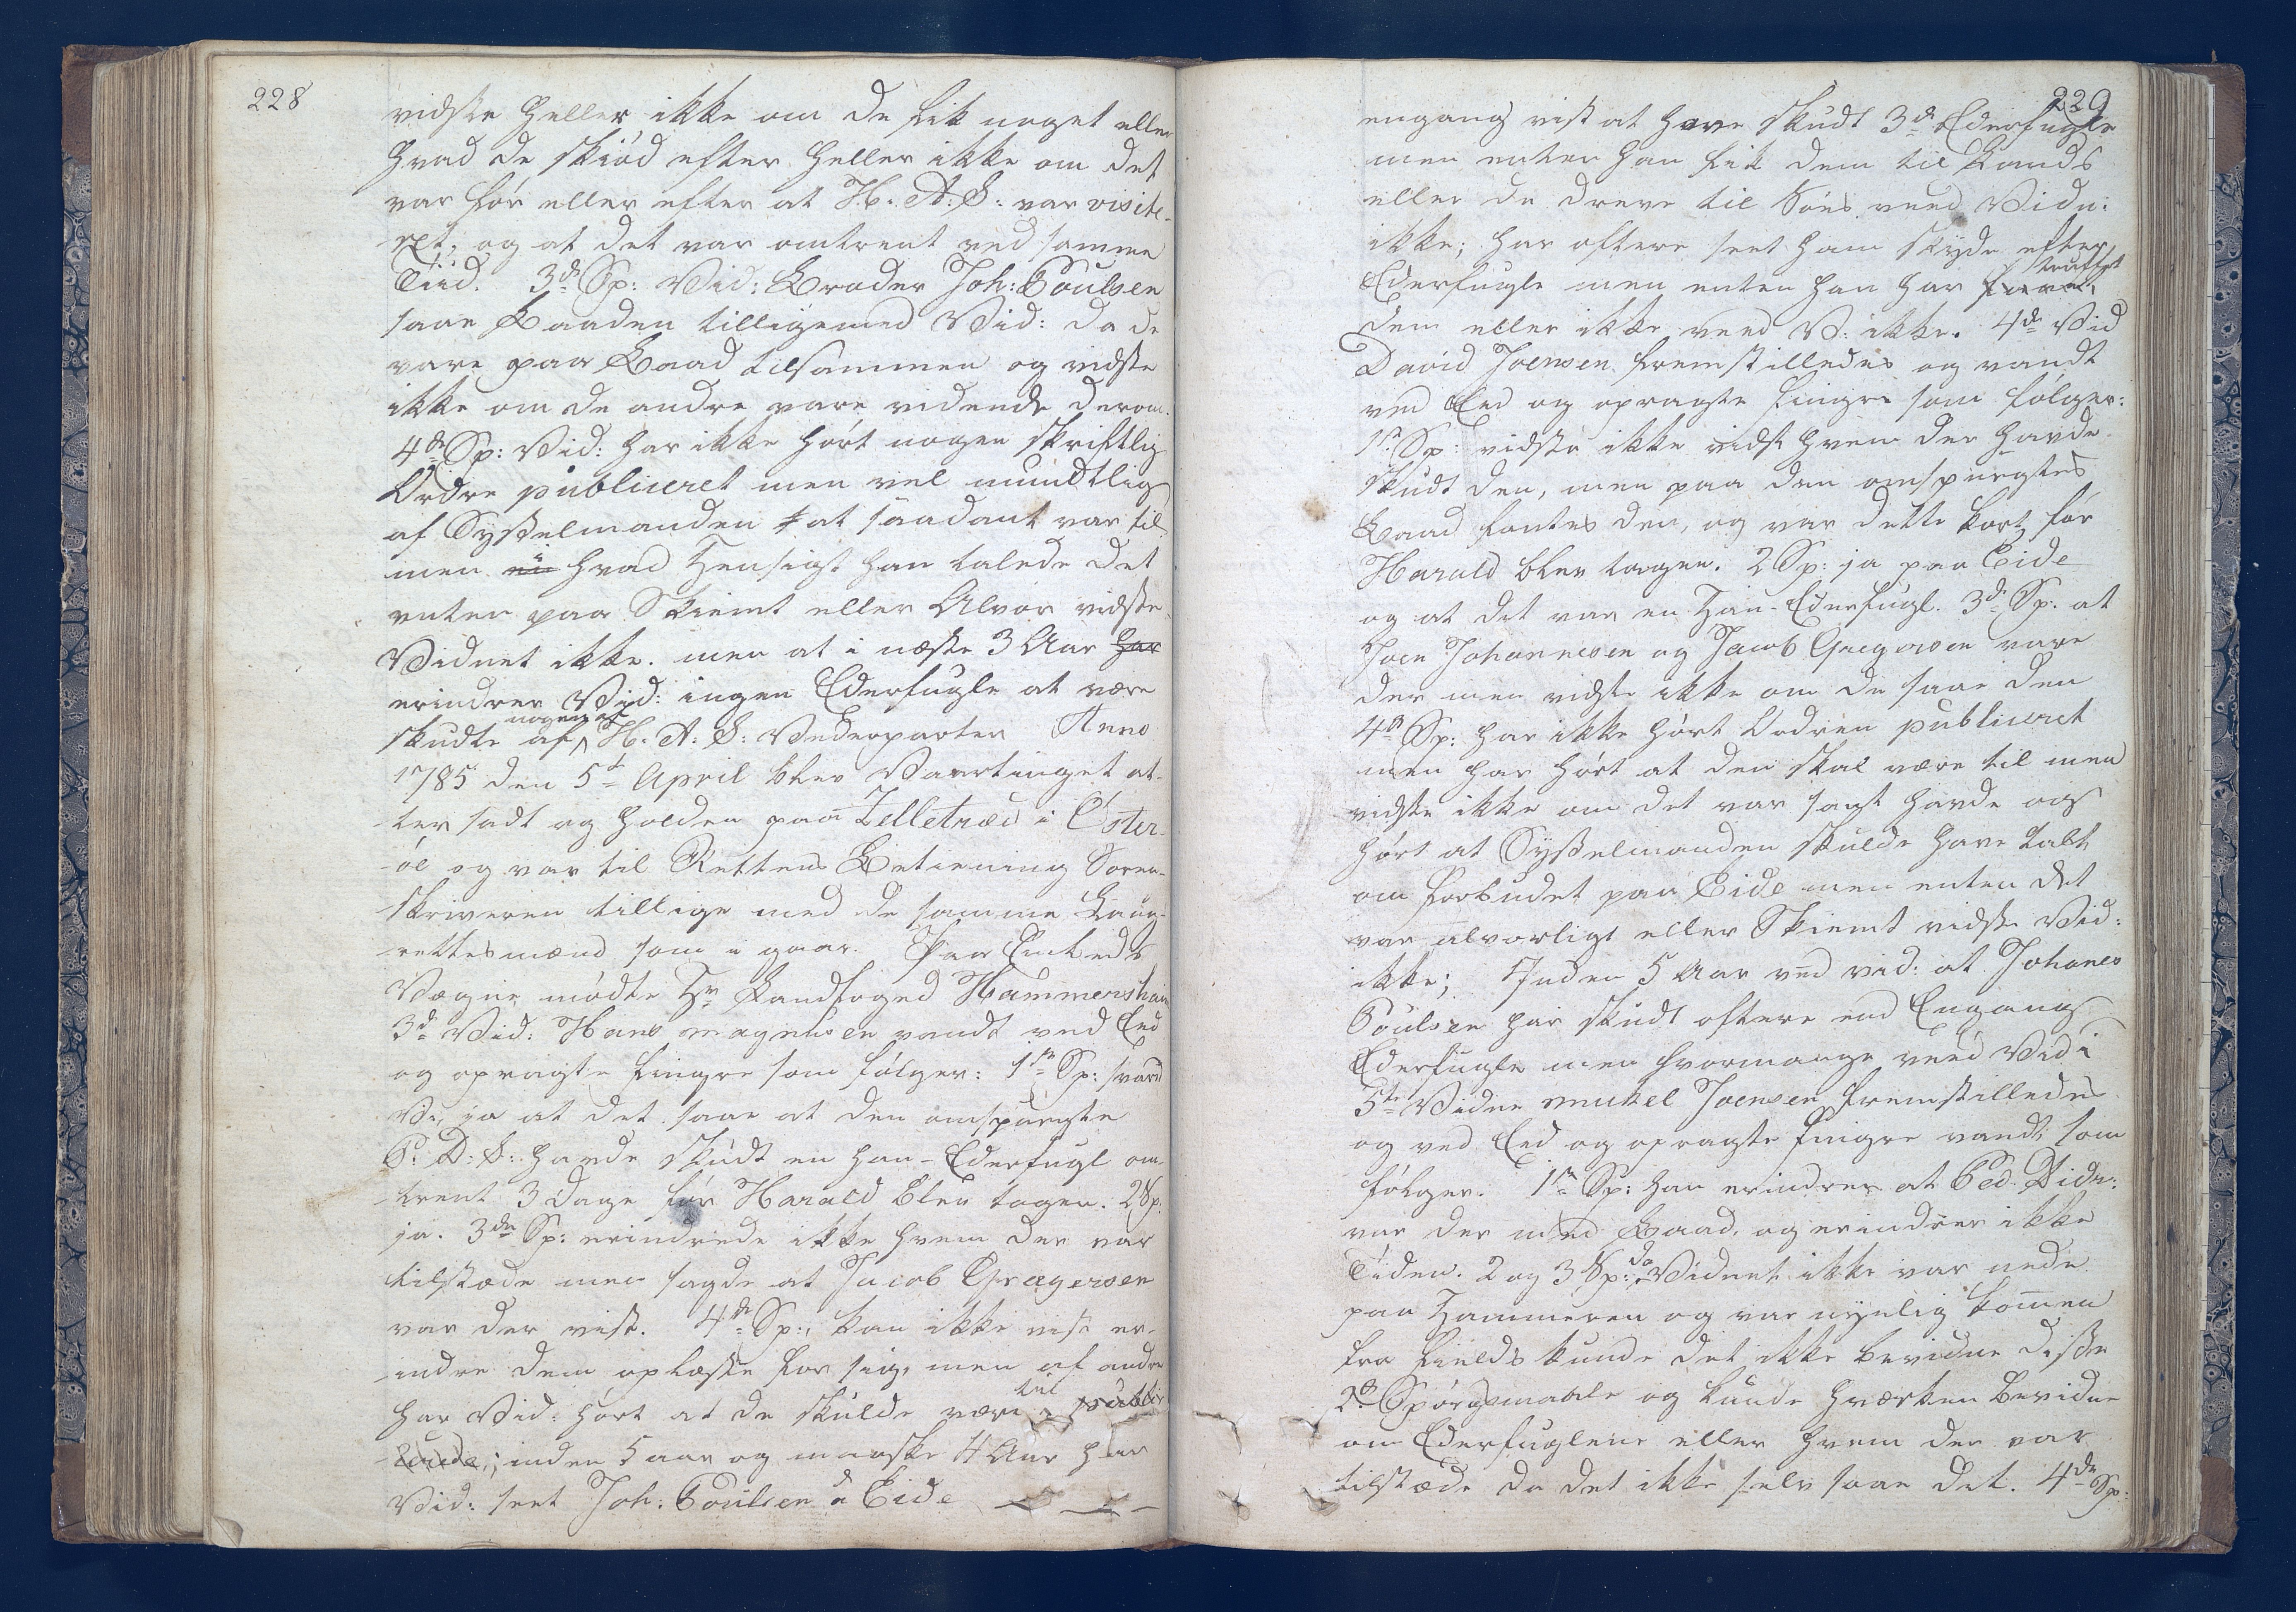 228
vidste heller ikke om de fik noget eller
hvad de skiöd efter heller ikke om det
var för eller efter at H. A. S: var visite-
ret, og at det var omtrent ved samme
Tiid. 3de Sp: Vid: Broder Joh: Poulsen
saae Baaden tilligemed Vid: da de
vare paa Baad tilsammen og vidste
ikke om de andre vare vidende derom.
4de Sp: Vid: har ikke hört nogen skriftlig
Ordre publiceret men vel mundtlig
af Sysselmanden at saadant var til
men hvad Hensigt han talede det
enten paa Skiemt eller Alvor vidste
Vidnet ikke. men at i næste 3 Aar har
erindrer Vid: ingen Ederfugle at være
skudte af nogen af H. A. S: Vederparter Anno
1785 den 5te April blev Vaartinget at-
ter sadt og holden paa Selletræd i Öster-
öe og var til Rettens Betiening Soren-
skriveren tillige med de samme Laug-
rettesmænd som i gaar. Paa Embeds
Vægne mödte Hr Landfoged Hammershaimb
3de Vid: Hans Magnusen vandt ved Eed
og opragte fingre som fölger: 1ste Sp: svared
V: ja at det saae at den omspurgte
P: D: S: havde skudt en han-Ederfugl om-
trent 3 Dage för Harald blev tagen. 2 Sp:
ja. 3de Sp: erindrede ikke hvem der var
tilstæde men sagde at Jacob Gregersen
var der vist. 4de Sp:, kan ikke vist er-
indre dem oplæste for sig, men af andre
har Vid: hört at de skulde være til
inden 5 aar og maaske 4 Aar har
Vid: seet Joh: Poulsen a Eide
229
engang vist at have skudt 3de Ederfugle
men enten han fik dem til Lands
eller de dreve til Söes veed Vidn:
ikke; har oftere seet ham skyde efter
Ederfugle men enten han har truffet
dem eller ikke veed V: ikke. 4de Vid
David Joensen fremstilledes og vandt
ved Eed og opragte fingre som fölger:
1ste Sp: vidste ikke vidst hvem der havde
skudt den, men paa den omspurgtes
Baad fantes den, og var dette kort för
Harald blev tagen. 2 Sp: ja paa Eide
og at det var en Han-Ederfugl. 3de Sp: at
Joen Johannesen og Jacob Gregersen vare
der men vidste ikke om de saae den
4de Sp: har ikke hört Ordren publiceret
men har hört at den skal være til men
vidste ikke om det var sagt havde og
hört at Sysselmanden skulde have talt
om forbudet paa Eide men enten det
var alvorligt eller Skiemt vidste Vid:
ikke; Inden 5 Aar ved vid: at Johanes
Poulsen har skudt oftere end Engang
Ederfugle men hvormange veed Vid i
5te Vidne Mickel Joensen fremstilledes
og ved Eed og opragte fingre vandt som
fölger. 1ste Sp: han erindrer at Ped: Vidn:
var der med Baad, og erindrer ikke
Tiden. 2 og 3 Sp: da Vidnet ikke var nede
paa Hammeren og var nyelig komen
fra fields kunde det ikke bevidne disse
2de Spörgsmaale og kunde hverken bevidne
om Ederfuglene eller hvem der var
tilstæde da det ikke selv saae det. 4de Sp: